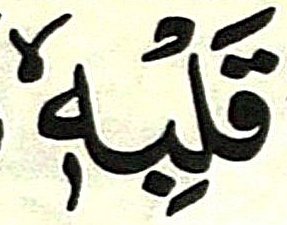 قَلْبِهٖۙ